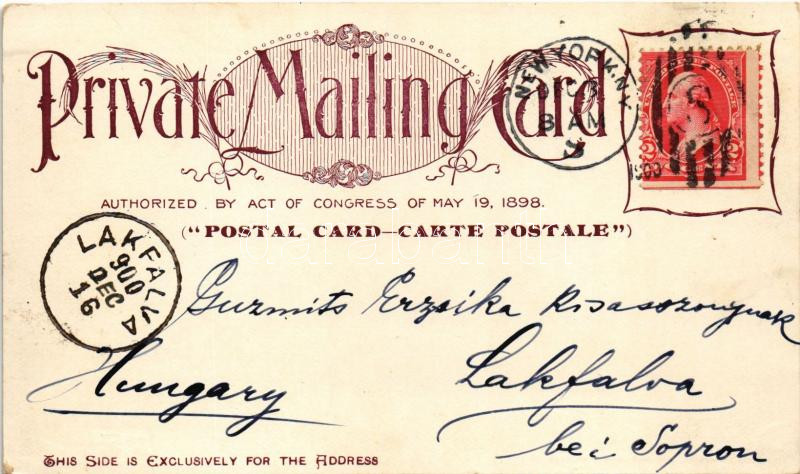 Private Mailing Card
AUTHORIZED BY ACT OF CONGRESS OF MAY 19, 1898.
("POSTAL CARD—CARTE POSTALE")
NEW YORK, N.Y.
8 AM
1900
LAKFALVA
900
DEC
16
Guzmits Erzsika Kisasszonynak
Lakfalva
bei Sopron
Hungary
THIS SIDE IS EXCLUSIVELY FOR THE ADDRESS